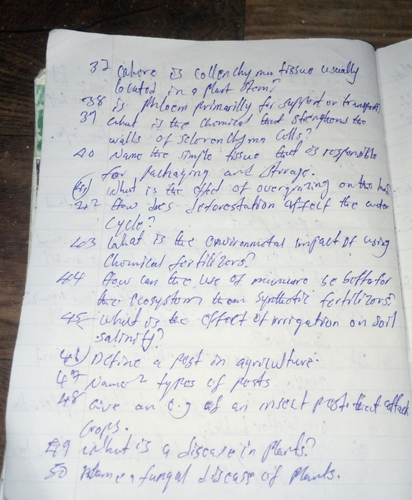 37 Where is collenchyma tissue usually
located in a plant stem?
38 is phloem primarilly for support or transport
39 What is the chemical that strengthens the
walls of sclerenchyma cells?
40 Name the simple tissue that is responsible
for packaging and storage.
41 What is the effect of overgrazing on the
42 How does deforestation affect the water
cycle?
43 What is the environmental impact of using
chemical fertilizers?
44 How can the use of manure be better for
the ecosystem than synthetic fertilizers?
45 What is the effect of irrigation on soil
salinity?
46 Define a pest in agriculture.
47 Name 2 types of pests
48 Give an e.g of an insect pest that attack
crops.
49 What is a disease in plants?
50 Name a fungal disease of plants.